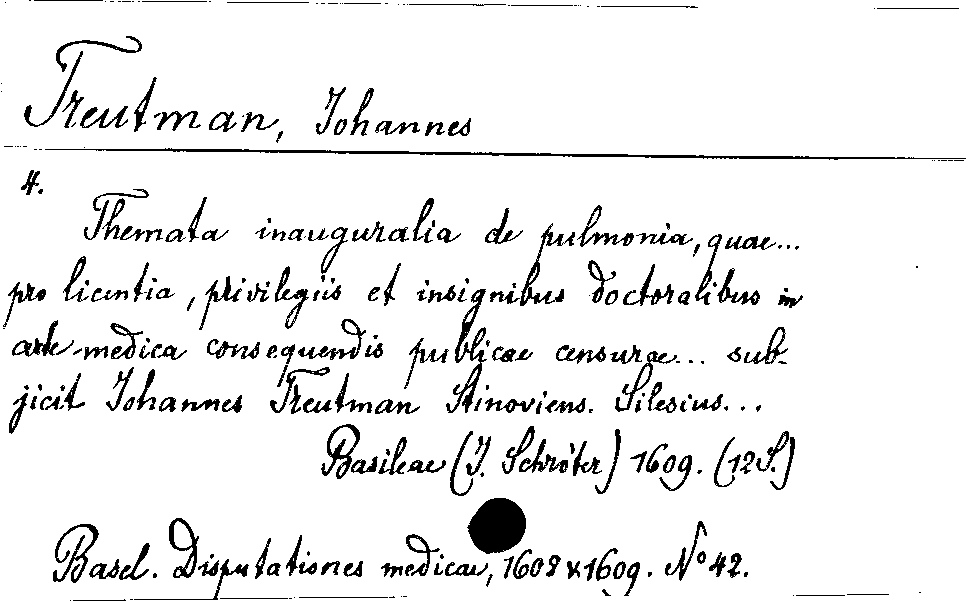 Treutman, Johannes
4.
Themata inauguralia de pulmonia, quae...
pro licentia, privilegiis et insignibus doctoralibus in
arte medica consequendis publicae censurae... sub-
jicit Johannes Treutman Stinoviens. Silesius...
Basileae (J. Schröter) 1609. (12 S.)
Basel. Disputationes medicae, 1608 x 1609. No 42.